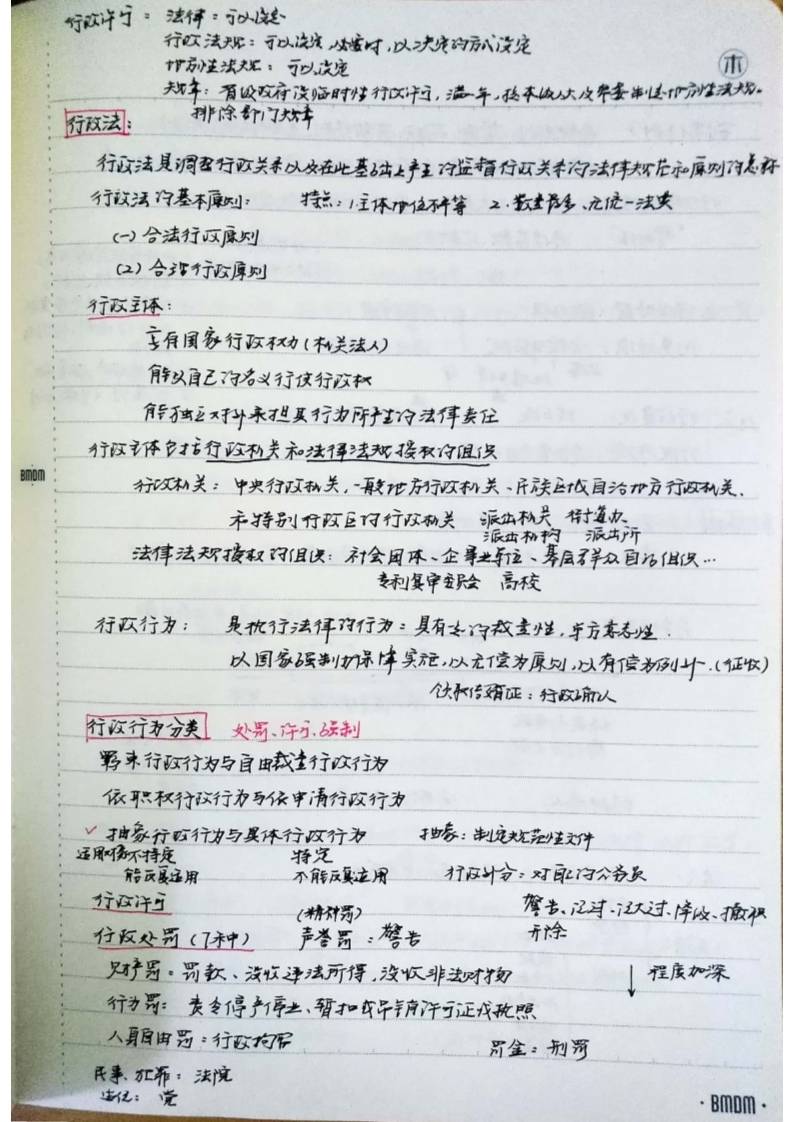 行政许可：法律：可以设定
行政法规：可以设定，必要时，以决定的方式设定
地方性法规：可以设定
规章：省级政府设临时性行政许可，满一年，提本级人大及常委制定地方性法规。
排除部门规章
木
行政法：
行政法是调整行政关系以及在此基础上产生的监督行政关系的法律规范和原则的总称
行政法的基本原则：　特点：1.主体地位不等　2.数量最多、无统一法典
(一) 合法行政原则
(2) 合理行政原则
行政主体：
享有国家行政权力(机关法人)
能以自己的名义行使行政权
能独立对外承担其行为所产生的法律责任
行政主体包括行政机关和法律法规授权的组织
BMDM
行政机关：中央行政机关，一般地方行政机关、民族区域自治地方行政机关、
和特别行政区的行政机关　派出机关　街道办、
派出机构　派出所
法律法规授权的组织：社会团体、企事业单位、基层群众自治组织…
专利复审委员会　高校
行政行为：是执行法律的行为：具有一定的裁量性，单方意志性．
以国家强制力保障实施，以无偿为原则，以有偿为例外．(征收)
领取结婚证：行政确认
行政行为分类　处罚、许可、强制
羁束行政行为与自由裁量行政行为
依职权行政行为与依申请行政行为
✓ 抽象行政行为与具体行政行为　抽象：制定规范性文件
适用对象不特定　特定
能反复适用　不能反复适用　行政处分：对自己的公务员
行政许可　警告、记过、记大过、降级、撤职
开除
(精神罚)
行政处罚(7种)　声誉罚：警告
财产罚：罚款、没收违法所得，没收非法财物　↓ 程度加深
行为罚：责令停产停业、暂扣或吊销许可证或执照
人身自由罚：行政拘留　罚金：刑罚
民事、犯罪：法院
违纪：党
· BMDM ·